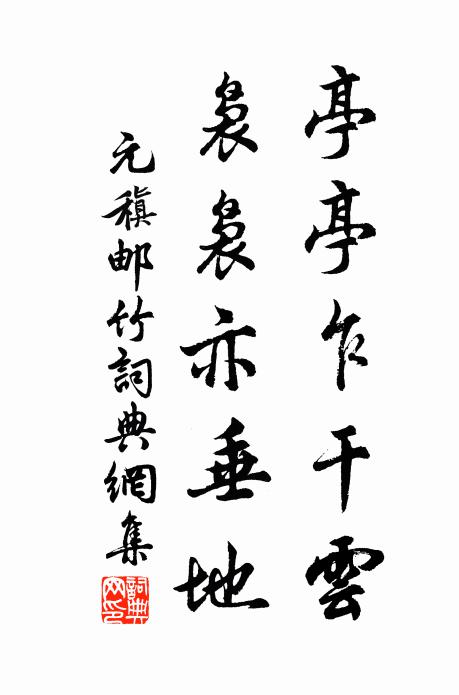 亭亭乍干雲
袅袅亦垂地
元稹邮竹詞典網集
詞典网印